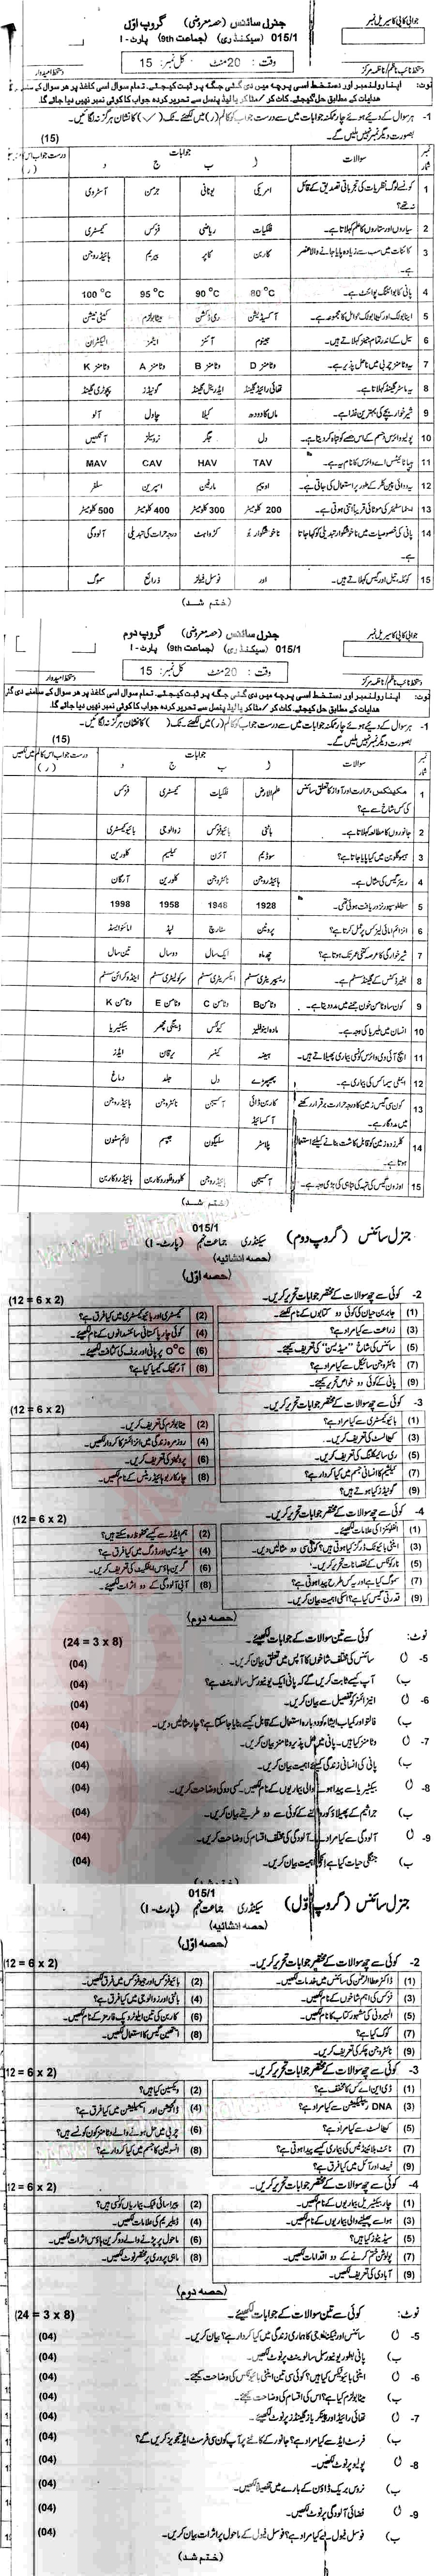 جوابی کاپی کا سیریل نمبر
جنرل سائنس (حصہ معروضی) گروپ اوّل
015/1 (سیکنڈری) (جماعت 9th) پارٹ - I
وقت : 20 منٹ کل نمبر: 15
دستخط امیدوار
نوٹ: اپنا رولنمبر اور دستخط اسی پرچہ میں دی گئی جگہ پر ثبت کیجئے۔ تمام سوال اسی کاغذ پر ہر سوال کے سامنے دی گئی
ہدایات کے مطابق حل کیجئے۔ کاٹ کر / مٹا کر یا لیڈ پنسل سے تحریر کردہ جواب کا کوئی نمبر نہیں دیا جائے گا۔
بصورت دیگر نمبر نہیں ملیں گے۔ (15)
نمبر شمار سوالات جوابات
ا ب ج د
1 کونسے لوگ نظریات کی تجرباتی تصدیق کے قائل نہ تھے؟ امریکی یونانی جرمن آسٹروی
2 سیاروں اور ستاروں کا علم کہلاتا ہے۔ فلکیات ریاضی فزکس کیمسٹری
3 کائنات میں سب سے زیادہ پایا جانے والا عنصر ہے۔ کاربن کاپر بیریم ہائیڈروجن
4 پانی کا بوائلنگ پوائنٹ ہے۔ 80 °C 90 °C 95 °C 100 °C
5 اینابولک اور کیٹابولک عوامل کا مجموعہ ہے۔ آکسیڈیشن ری ڈکشن میٹابولزم
6 سیل کے اندر تمام جینز کہلاتے ہیں۔ جینوم آئنز ایٹمز الیکٹران
7 یہ وٹامنز چربی میں ناحل پذیر ہے۔ وٹامنز D وٹامنز B وٹامنز A وٹامنز K
8 یہ ماسٹر گلینڈ کہلاتا ہے۔ تھائی رائیڈ گلینڈ ایڈرینل گلینڈ گونیڈز پچوٹری گلینڈ
9 شیر خوار بچے کی بہترین غذا ہے۔ ماں کا دودھ کیلا چاول آلو
10 پولیو وائرس جسم کے اس حصے کو تباہ کر دیتا ہے۔ دل جگر نرو سیلز آنکھیں
11 ہیپاٹائٹس اے وائرس کا نام یہ ہے۔ TAV HAV CAV MAV
12 یہ دوائی پین کلر کے طور پر استعمال کی جاتی ہے۔ اوپیم مارفین اسپرین سلفر
13 اٹماسفیئر کی موٹائی تقریباً اتنی ہوتی ہے۔ 200 کلومیٹر 300 کلومیٹر 400 کلومیٹر 500 کلومیٹر
14 پانی کی خصوصیات میں ناخوشگوار تبدیلی کو کہا جاتا ہے۔ کڑواہٹ درجہ حرارت کی تبدیلی آلودگی
15 کوئلہ، تیل اور گیس کہلاتے ہیں۔ اور فوسل فیولز ذرائع سموگ
(ختم شد)
جوابی کاپی کا سیریل نمبر
جنرل سائنس (حصہ معروضی) گروپ دوم
015/1 (سیکنڈری) (جماعت 9th) پارٹ - I
وقت : 20 منٹ کل نمبر: 15
دستخط امیدوار
نوٹ: اپنا رولنمبر اور دستخط اسی پرچہ میں دی گئی جگہ پر ثبت کیجئے۔ تمام سوال اسی کاغذ پر ہر سوال کے سامنے دی گئی
ہدایات کے مطابق حل کیجئے۔ کاٹ کر / مٹا کر یا لیڈ پنسل سے تحریر کردہ جواب کا کوئی نمبر نہیں دیا جائے گا۔
بصورت دیگر نمبر نہیں ملیں گے۔ (15)
نمبر شمار سوالات جوابات
ا ب ج د
1 مکینکس، حرارت اور آواز کا تعلق سائنس کی کس شاخ سے ہے؟ علم الارض فلکیات کیمسٹری فزکس
2 جانوروں کا مطالعہ کہلاتا ہے۔ باٹنی بائیو فزکس زوالوجی بائیو کیمسٹری
3 ہیموگلوبن میں کیا پایا جاتا ہے؟ سوڈیم آئرن کیلشیم کلورین
4 ریئر گیس کی مثال ہے۔ ہائیڈروجن نائٹروجن کلورین آرگان
5 سیفلوسپورنز دریافت ہوئی تھی۔ 1928 1948 1958 1998
6 انزائم امائی لیز کس پر عمل کرتا ہے؟ پروٹین سٹارچ لپڈ امائنو ایسڈ
7 شیر خوارگی کا عرصہ کتنی عمر تک ہوتا ہے؟ چھ ماہ ایک سال دو سال تین سال
8 بغیر ڈکٹس کے گلینڈ سسٹم ہے۔ ریسپریٹری سسٹم ایکسکریٹری سسٹم سرکولیٹری سسٹم اینڈوکرائن سسٹم
9 کون سا وٹامن خون جمنے میں مدد دیتا ہے۔ وٹامن B وٹامن C وٹامن E وٹامن K
10 انسان میں ملیریا کی وجہ ہے۔ مادہ اینوفلیز کیولکس ڈینگی مچھر بیکٹیریا
11 ایچ آئی وی وائرس کونسی بیماری پھیلاتے ہیں۔ ہیضہ کینسر یرقان ایڈز
12 ایمفی سیما کس کی بیماری ہے۔ پھیپھڑے دل جلد دماغ
13 کون سی گیس زمین کا درجہ حرارت برقرار رکھنے میں مددگار ہے۔ کاربن ڈائی آکسائیڈ آکسیجن نائٹروجن ہائیڈروجن
14 کلرزدہ زمین کو قابل کاشت بنانے کیلئے استعمال ہوتا ہے۔ پلاسٹر سلیکون جپسم لائم سٹون
15 اوزون گیس کی تہہ کی تباہی کی بڑی وجہ ہے۔ آکسیجن ہائیڈروجن کلوروفلوروکاربن ہائیڈروکاربن
(ختم شد)
015/1
جنرل سائنس (گروپ دوم) سیکنڈری جماعت نہم (پارٹ - I)
(حصہ انشائیہ)
(حصہ اوّل)
2- کوئی سے چھ سوالات کے مختصر جوابات تحریر کریں۔ (12 = 6 x 2)
(1) جابر بن حیان کی کوئی دو کتابوں کے نام لکھئے۔ (2) کیمسٹری اور بائیو کیمسٹری میں کیا فرق ہے؟
(3) زراعت سے کیا مراد ہے؟ (4) کوئی چار پاکستانی سائنسدانوں کے نام لکھئے۔
(5) سائنس کی شاخ "میڈیسن" کی تعریف کیجئے۔ (6) 0°C پر پانی اور برف کی کثافت لکھئے۔
(7) نائٹروجن سائیکل سے کیا مراد ہے؟ (8) آرگینک کیمیا کیا ہے؟
(9) پانی کے کوئی دو خواص تحریر کیجئے۔
3- کوئی سے چھ سوالات کے مختصر جوابات تحریر کریں۔ (12 = 6 x 2)
(1) بائیو کیمسٹری سے کیا مراد ہے؟ (2) میٹابولزم کی تعریف کریں۔
(3) کیٹالسٹ کی تعریف کریں۔ (4) روزمرہ زندگی میں انزائمز کا کردار لکھیں۔
(5) ری سائیکلنگ کی تعریف کریں۔ (6) پروٹینز کی تعریف کریں۔
(7) کیلشیم کا انسانی جسم میں کیا کردار ہے؟ (8) چار کاربوہائیڈریٹس کے نام لکھیں۔
(9) گونیڈز کیا ہوتے ہیں؟
4- کوئی سے چھ سوالات کے مختصر جوابات تحریر کریں۔ (12 = 6 x 2)
(1) انفلوئنزا کی علامات لکھیئے۔ (2) ہم ایڈز سے کیسے محفوظ رہ سکتے ہیں؟
(3) اینٹی بائیوٹک ڈرگز کیا ہوتی ہیں؟ کوئی سی دو مثالیں دیں۔ (4) میڈیسن اور ڈرگ میں کیا فرق ہے؟
(5) نارکوٹکس کے نقصانات تحریر کریں۔ (6) گرین ہاؤس ایفیکٹ کی تعریف کریں۔
(7) سموگ کیا ہے اور یہ کس طرح پیدا ہوتی ہے؟ (8) آبی آلودگی کے دو اثرات لکھیئے۔
(9) قدرتی گیس کیا ہے؟ اسکی اہمیت بیان کریں۔
(حصہ دوم)
نوٹ: کوئی سے تین سوالات کے جوابات لکھیئے۔ (24 = 3 x 8)
5- ا) سائنس کی مختلف شاخوں کا آپس میں تعلق بیان کریں۔ (04)
ب) آپ کیسے ثابت کریں گے کہ پانی ایک یونیورسل سالوینٹ ہے؟ (04)
6- ا) انیزائمز کو تفصیل سے بیان کریں۔ (04)
ب) فالتو اور کمیاب اشیاء کو دوبارہ استعمال کے قابل کیسے بنایا جا سکتا ہے؟ چار مثالیں دیں۔ (04)
7- ا) وٹامنز کیا ہیں۔ پانی میں حل پذیر وٹامنز بیان کریں۔ (04)
ب) پانی کی انسانی زندگی کیلئے اہمیت بیان کریں۔ (04)
8- ا) بیکٹیریا سے پیدا ہونے والی بیماریوں کے نام لکھیں۔ کسی دو کی وضاحت کریں۔ (04)
ب) جراثیم کے پھیلاؤ کو روکنے کے کوئی سے دو طریقے بیان کریں۔ (04)
9- ا) آلودگی سے کیا مراد ہے۔ آلودگی کی مختلف اقسام کی وضاحت کریں۔ (04)
ب) جنگلی حیات کیا ہے؟ اہمیت بیان کریں۔ (04)
015/1
جنرل سائنس (گروپ اوّل) سیکنڈری جماعت نہم (پارٹ - I)
(حصہ انشائیہ)
(حصہ اوّل)
2- کوئی سے چھ سوالات کے مختصر جوابات تحریر کریں۔ (12 = 6 x 2)
(1) ڈاکٹر عطا الرحمٰن کی سائنس میں خدمات لکھیں۔ (2) بائیو فزکس اور جیو فزکس میں فرق لکھیں۔
(3) فزکس کی اہم شاخوں کے نام لکھیں۔ (4) باٹنی اور زوالوجی میں کیا فرق ہے؟
(5) البیرونی کی مشہور کتاب کا نام لکھیں۔ (6) کاربن کی تین ایلوٹروپک فارمز کے نام لکھیں۔
(7) کوک کیا ہے؟ (8) ایتھین گیس کا استعمال لکھیں۔
(9) نائٹروجن چکر کی تعریف کریں۔
3- کوئی سے چھ سوالات کے مختصر جوابات تحریر کریں۔ (12 = 6 x 2)
(1) ڈی این اے کس کا مخفف ہے؟ (2) ویکسین کیا ہیں؟
(3) DNA ریپلیکیشن سے کیا مراد ہے؟ (4) ڈائجیشن اور اسیمیلیشن میں کیا فرق ہے؟
(5) کیٹالسٹ سے کیا مراد ہے؟ (6) چربی میں حل ہونے والے وٹامنز کون کونسے ہیں؟
(7) نائٹ بلائنڈنیس کی بیماری کیسے پیدا ہوتی ہے؟ (8) انسولین کا جسم میں کیا کردار ہے؟
(9) فیٹ اور آئل میں کیا فرق ہے؟
4- کوئی سے چھ سوالات کے مختصر جوابات تحریر کریں۔ (12 = 6 x 2)
(1) چار بیکٹیریل بیماریوں کے نام لکھیں۔ (2) پیراسائی ٹک بیماریاں کونسی ہیں؟
(3) ہوا سے پھیلنے والی بیماریوں کے نام لکھیں۔ (4) ڈیلیریم کی علامات لکھیں۔
(5) سیڈیٹوز کیا ہیں؟ (6) ماحول پر پڑنے والے دو گرین ہاؤس اثرات لکھیں۔
(7) پولوشن ختم کرنے کے دو اقدامات لکھیں۔ (8) ماہی پروری پر مختصر نوٹ لکھیں۔
(9) آبادی کی تعریف لکھیں۔
(حصہ دوم)
نوٹ: کوئی سے تین سوالات کے جوابات لکھیئے۔ (24 = 3 x 8)
5- ا) سائنس اور ٹیکنالوجی کا ہماری زندگی میں کیا کردار ہے؟ بیان کریں۔ (04)
ب) پانی بطور یونیورسل سالوینٹ پر نوٹ لکھیں۔ (04)
6- ا) اینٹی بائیوٹکس کیا ہیں؟ کوئی سی تین اینٹی بائیوٹکس کی وضاحت کیجئے۔ (04)
ب) میٹابولزم کیا ہے؟ اس کی اقسام کی وضاحت کیجئے۔ (04)
7- ا) تھائی رائیڈ اور پینکریاز گلینڈز پر نوٹ لکھیئے۔ (04)
ب) فرسٹ ایڈ سے کیا مراد ہے؟ جانور کے کاٹنے پر آپ کون سی فرسٹ ایڈ تجویز کریں گے؟ (04)
8- ا) پولیو پر نوٹ لکھیں۔ (04)
ب) نروس بریک ڈاؤن کے بارے میں تفصیلاً لکھیں۔ (04)
9- ا) فضائی آلودگی پر نوٹ لکھیں۔ (04)
ب) فوسل فیول سے کیا مراد ہے؟ فوسل فیول کے ماحول پر اثرات بیان کریں۔ (04)
(ختم شد)